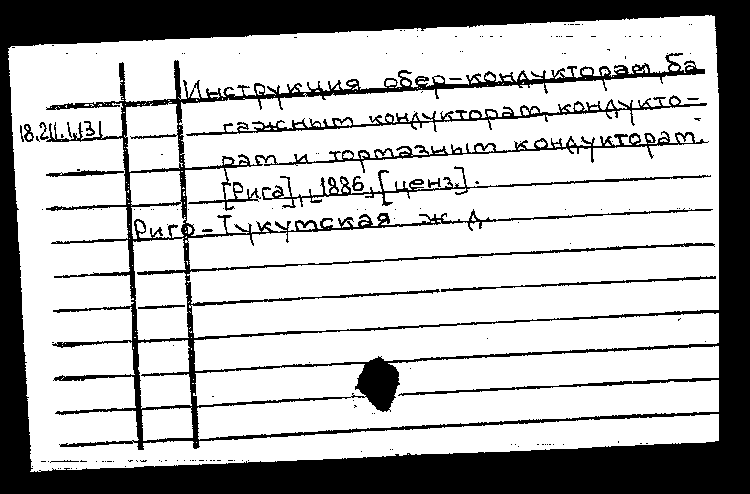 Инструкция обер-кондукторам, ба
18.211.1.131
гажным кондукторам, кондукто-
рам и тормазным кондукторам.
[Рига], 1886, [ценз.].
Риго-Тукумская ж.д.